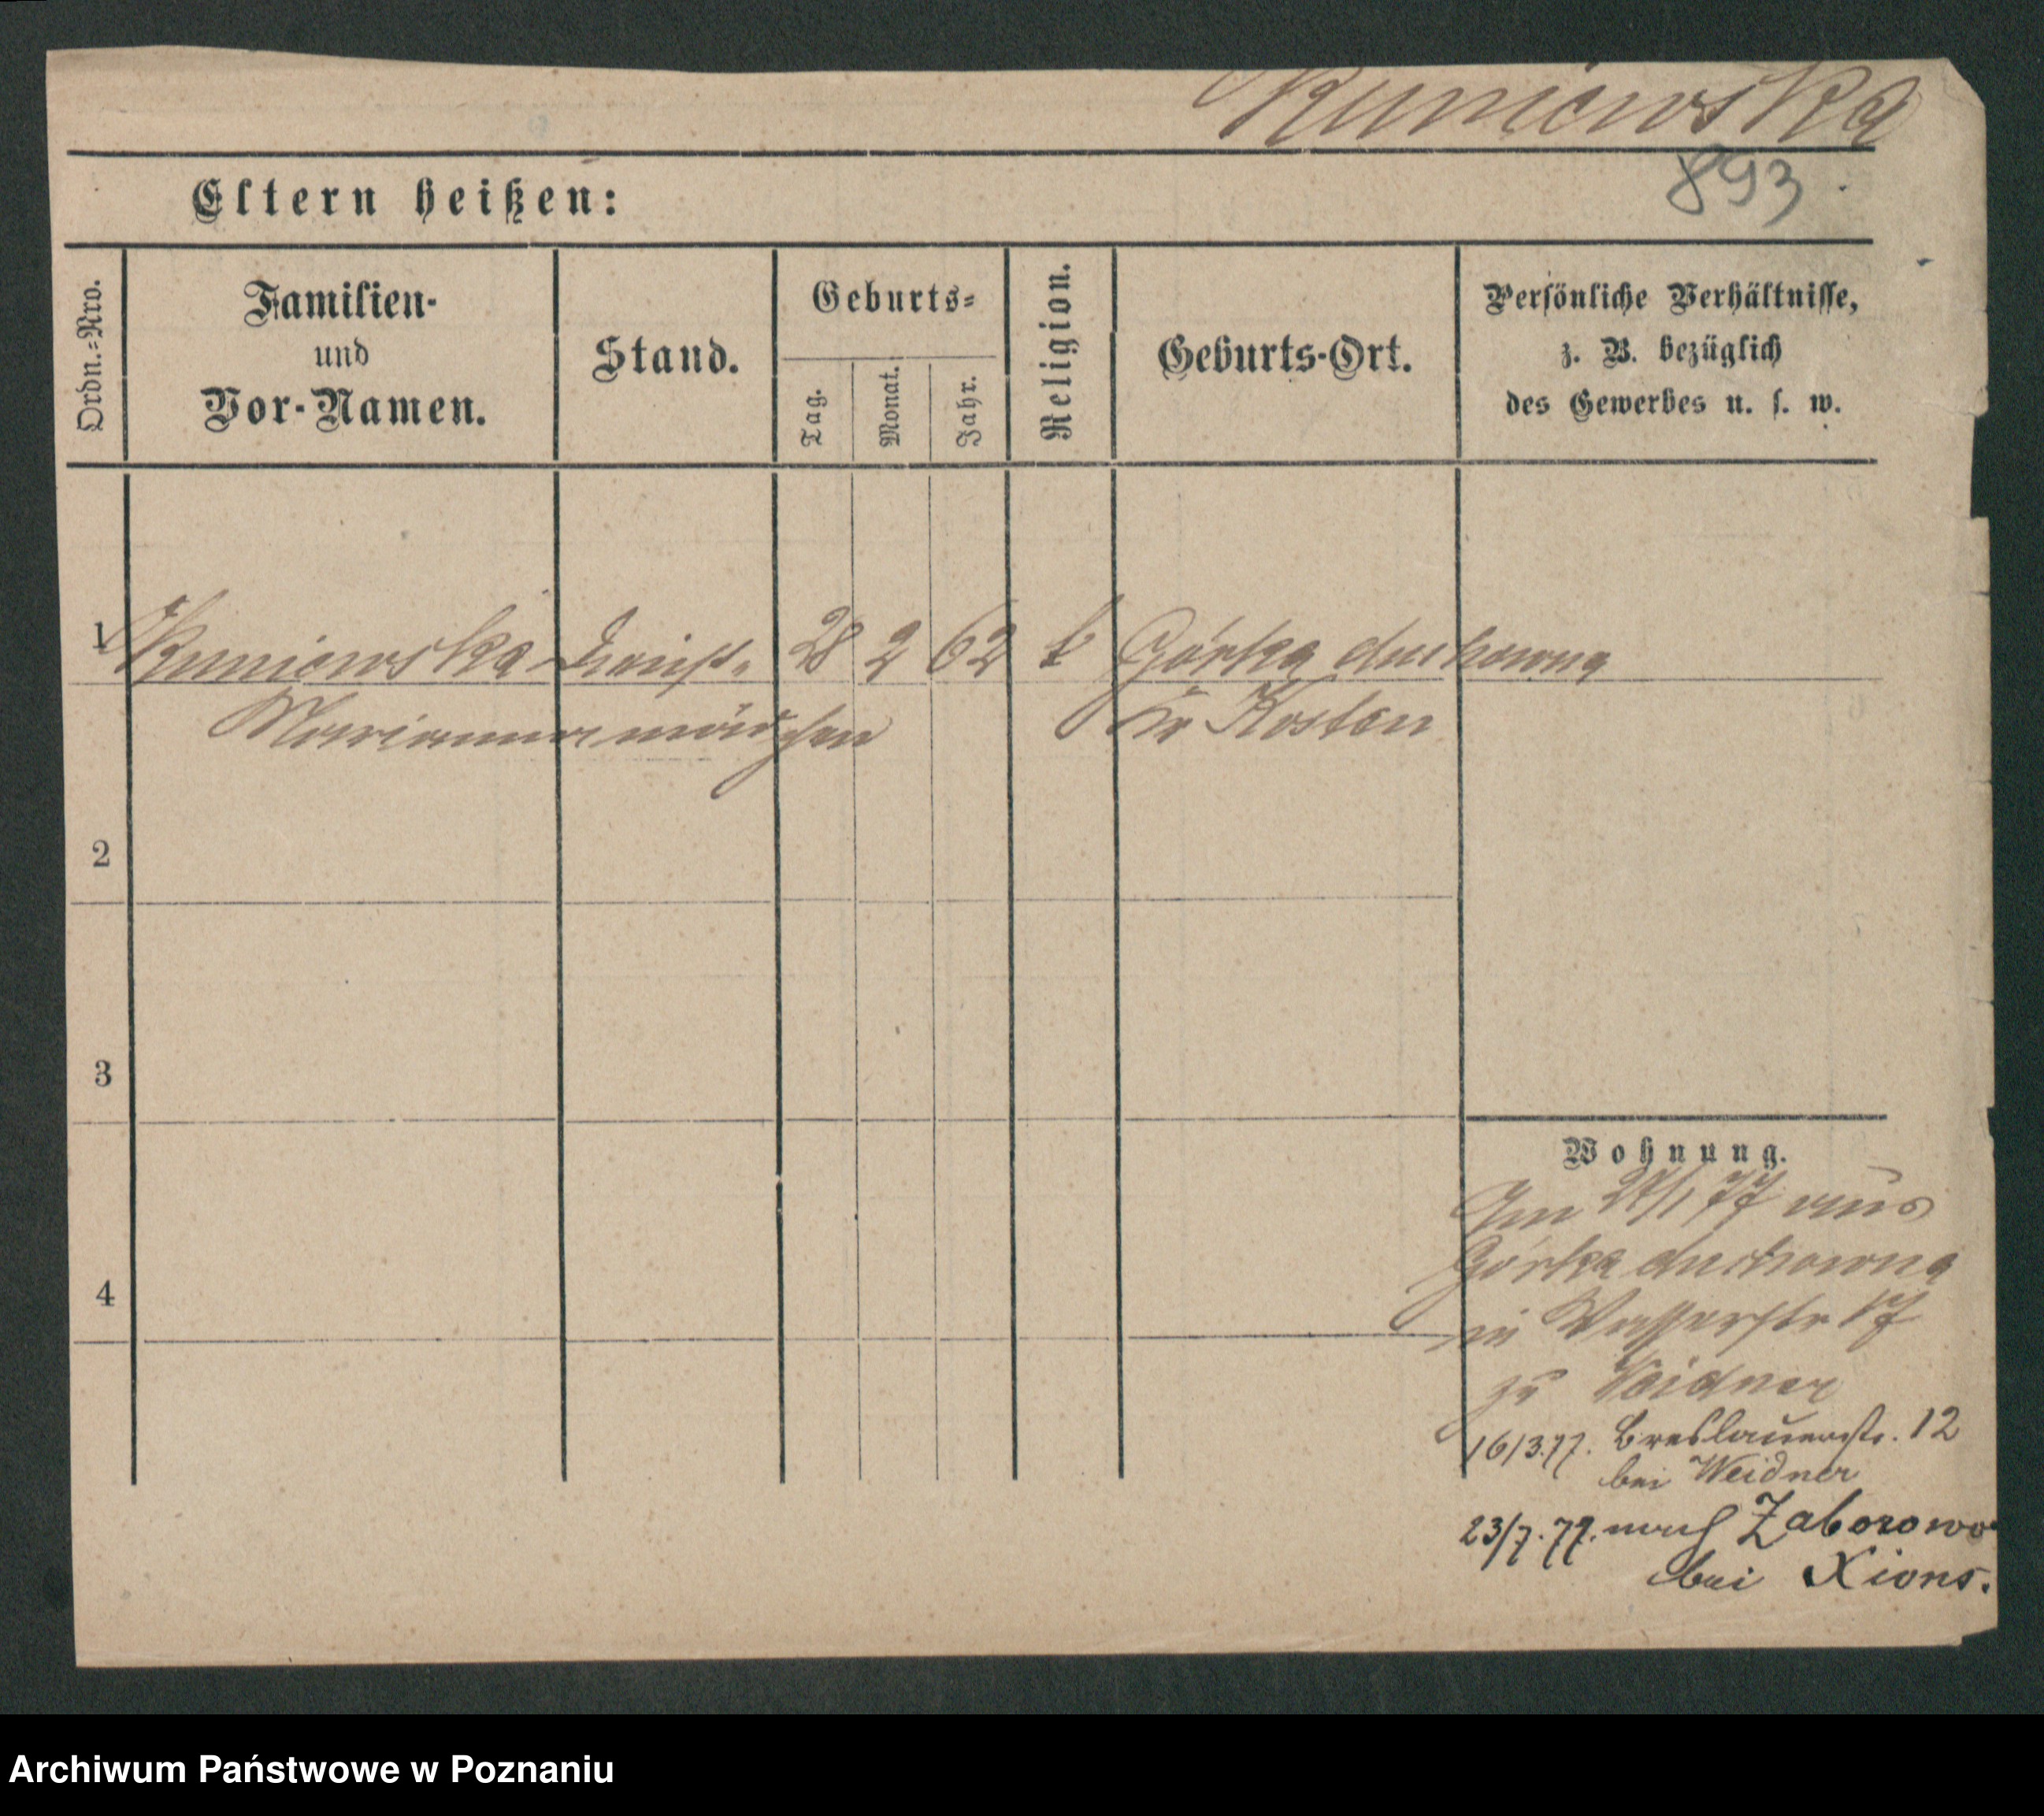 Kuniewska
893
Eltern heißen:
Ordn.=Nro.
Familien-
und
Vor-Namen.
Stand.
Geburts=
Tag.
Monat.
Jahr.
Religion.
Geburts-Ort.
Persönliche Verhältnisse,
z. B. bezüglich
des Gewerbes u. s. w.
1 Kuniewska Dienst- 28 2 62 k Górka duchowna
Marianna mädchen Kr Kosten
2
3
4
Wohnung.
Im 24/1 77 aus
Górka duchowna
in Wasserstr 17
zu Weidner
16/3.77. Breslauerstr. 12
bei Weidner
23/7.77. nach Zaborowo
bei Xions.
Archiwum Państwowe w Poznaniu